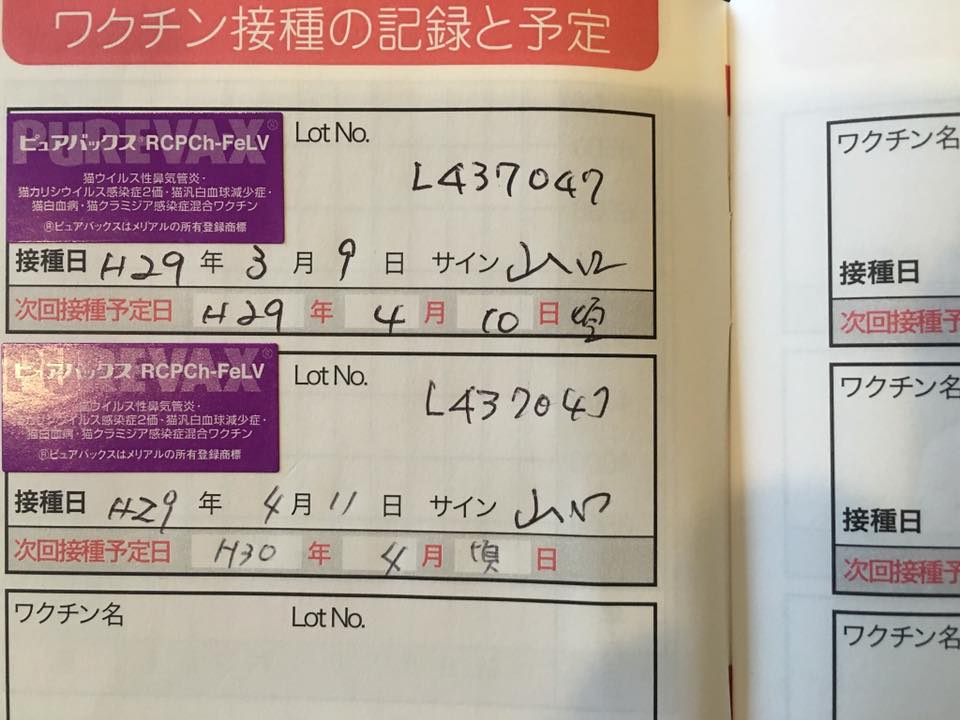 ワクチン接種の記録と予定
PUREVAX®
ピュアバックス RCPCh-FeLV
猫ウイルス性鼻気管炎・
猫カリシウイルス感染症2価・猫汎白血球減少症・
猫白血病・猫クラミジア感染症混合ワクチン
Ⓡピュアバックスはメリアルの所有登録商標
Lot No.
L437047
接種日 H29 年 3 月 9 日 サイン 山口
次回接種予定日 H29 年 4 月 10 日 頃
PUREVAX®
ピュアバックス RCPCh-FeLV
猫ウイルス性鼻気管炎・
猫カリシウイルス感染症2価・猫汎白血球減少症・
猫白血病・猫クラミジア感染症混合ワクチン
Ⓡピュアバックスはメリアルの所有登録商標
Lot No.
L437047
接種日 H29 年 4 月 11 日 サイン 山口
次回接種予定日 H30 年 4 月 頃 日
ワクチン名 Lot No.
ワクチン名
接種日
次回接種予
ワクチン名
接種日
次回接種予
ワクチン名